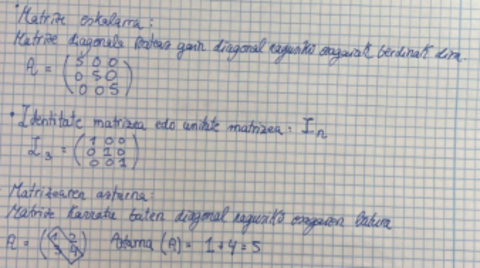 • Matrize eskalarra:
Matrize diagonala izateaz gain diagonal nagusiko osagaiak berdinak dira.
A = (5 0 0
0 5 0
0 0 5)
• Identitate matrizea edo unitate matrizea: I_n
I_3 = (1 0 0
0 1 0
0 0 1)
Matrizearen aztarna:
Matrize karratu baten diagonal nagusiko osagaien batura
A = (1 2
3 4) Aztarna (A) = 1+4=5